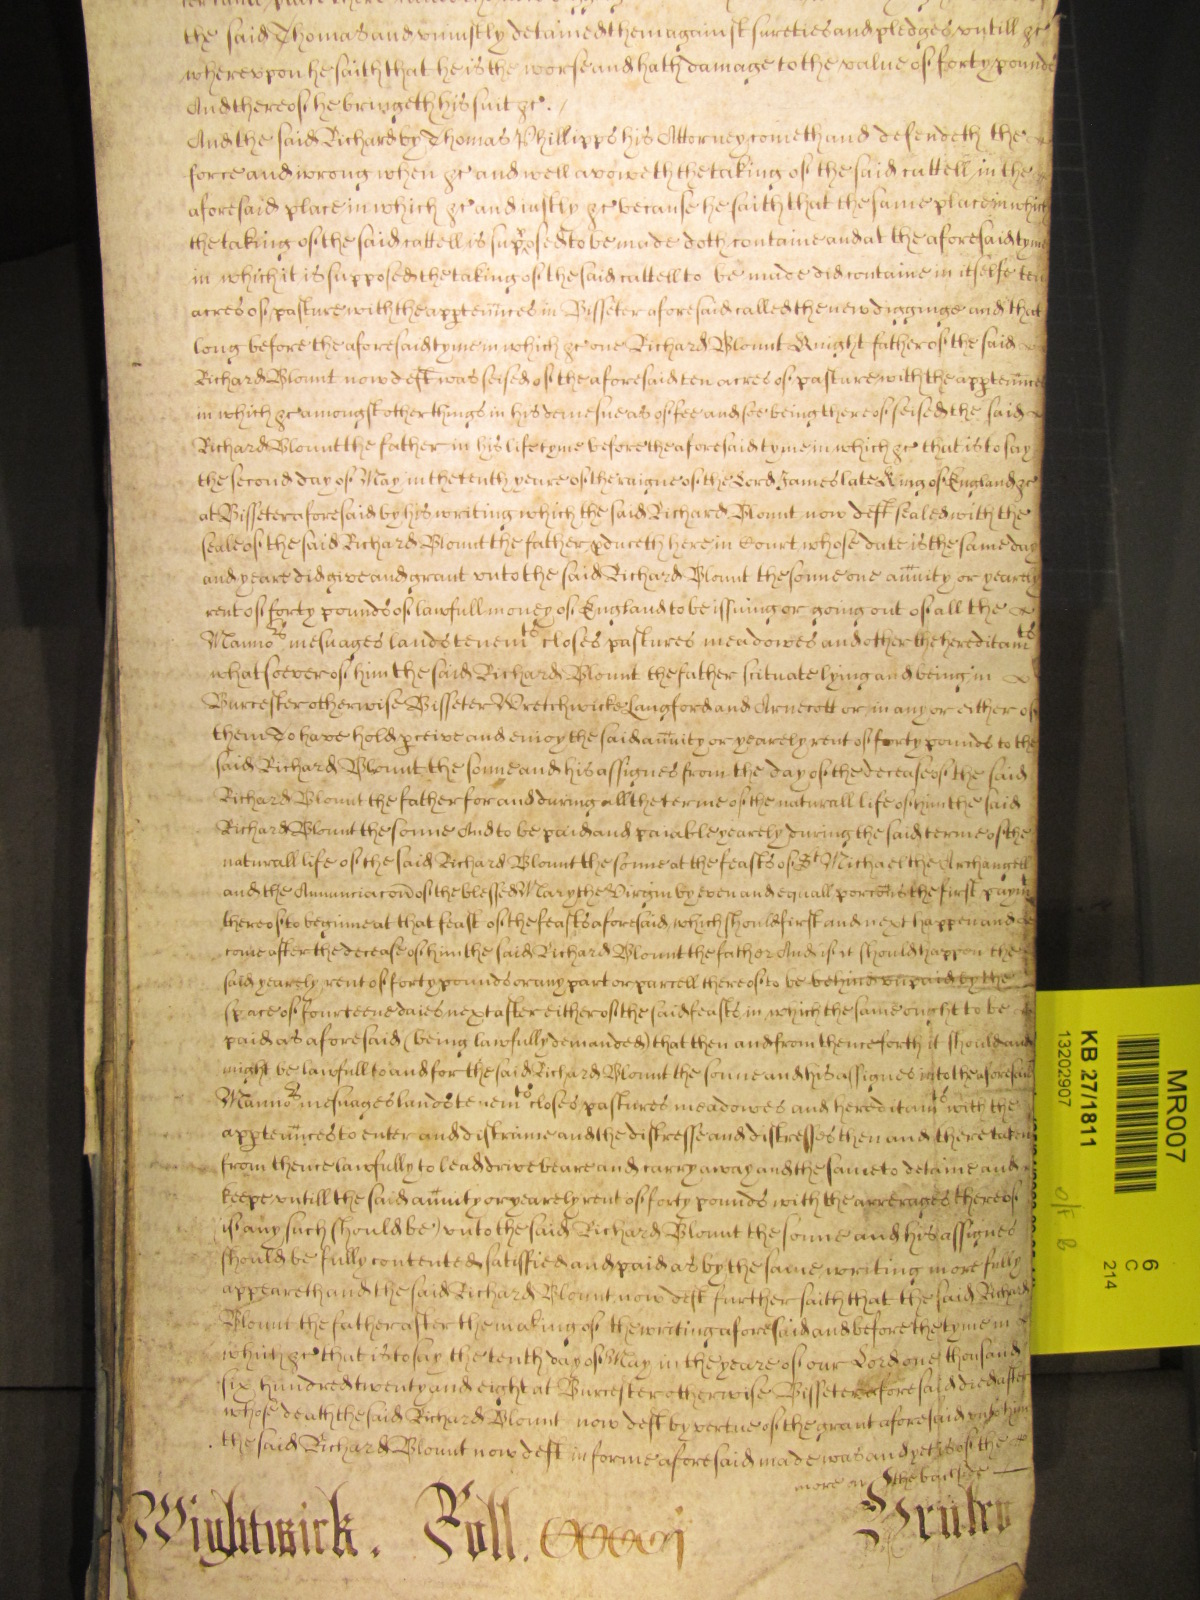 the said Thomas and uniustly detained them against sureties and pledges untill &c
whereupon he saith that he is the worse and hath damage to the value of forty pounds
And thereof he bringeth his suit &c. /
And the said Richard by Thomas Phillipps his Attorney cometh and defendeth the
force and wrong when &c and well avoweth the taking of the said cattell in the
aforesaid place in which &c and iustly &c because he saith that the same place in which
the taking of the said cattell is supposed to be made doth containe and at the aforesaid tyme
in which it is supposed the taking of the said cattell to be made did containe in it selfe ten
acres of pasture with the apptenn̄ces in Bisseter aforesaid called the new diggings and that
long before the aforesaid tyme in which &c one Richard Blount Knight father of the said
Richard Blount now deft was seised of the aforesaid ten acres of pasture with the apptenn̄ces
in which &c amongst other things in his demesne as of fee and soe being thereof seised the said
Richard Blount the father in his life tyme before the aforesaid tyme in which &c that is to say
the second day of May in the tenth yeare of the raigne of the Lord James late King of England &c
at Bisseter aforesaid by his writing which the said Richard Blount now deft sealed with the
seale of the said Richard Blount the father pduceth here in Court whose date is the same day
and yeare did give and grant unto the said Richard Blount the sonne one anūity or yearely
rent of forty pounds of lawfull money of England to be issuing or going out of all the
Manno:rs mesuages lands tenemts closes pastures meadowes and other the hereditamts
whatsoever of him the said Richard Blount the father scituate lying and being in
Burcester otherwise Bisseter Wretchwicke Langford and Arnecott or in any or either of
them To have hold pceive and enioy the said anūity or yearely rent of forty pounds to the
said Richard Blount the sonne and his assignes from the day of the decease of the said
Richard Blount the father for and during all the terme of the naturall life of him the said
Richard Blount the sonne And to be paid and paiable yearely during the said terme of the
naturall life of the said Richard Blount the sonne at the feasts of St Michael the Archangell
and the Annunciacōn of the blessed Mary the Virgin by even and equall porcōns the first paymt
thereof to begin at that feast of the feasts aforesaid which should first and next happen and
come after the decease of him the said Richard Blount the father And if it should happen the
said yearely rent of forty pounds or any part or parcell thereof to be behind unpaid by the
space of fourteene daies next after either of the said feasts in which the same ought to be
paid as aforesaid (being lawfully demanded) that then and from thenceforth it should and
might be lawfull to and for the said Richard Blount the sonne and his assignes into the aforesaid
Manno:rs mesuages lands tenemts closes pastures meadowes and hereditamts with the
apptenn̄ces to enter and distraine and the distresse and distresses then and there taken
from thence lawfully to lead drive beare and carry away and the same to detaine and
keepe untill the said anūity or yearely rent of forty pounds with the arrerages thereof
(if any such should be) unto the said Richard Blount the sonne and his assignes
should be fully contented satisfied and paid as by the same writing more fully
appeareth and the said Richard Blount now deft further saith that the said Richard
Blount the father after the making of the writing aforesaid and before the tyme in
which &c that is to say the tenth day of May in the yeare of our Lord one thousand
six hundred twenty and eight at Burcester otherwise Bisseter aforesaid died after
whose death the said Richard Blount now deft by vertue of the grant aforesaid unto him
the said Richard Blount now deft in forme aforesaid made was and yet is of the
more on the backside
Wightwick. Roll.
MR007
KB 27/1811
13202907
6
C
214